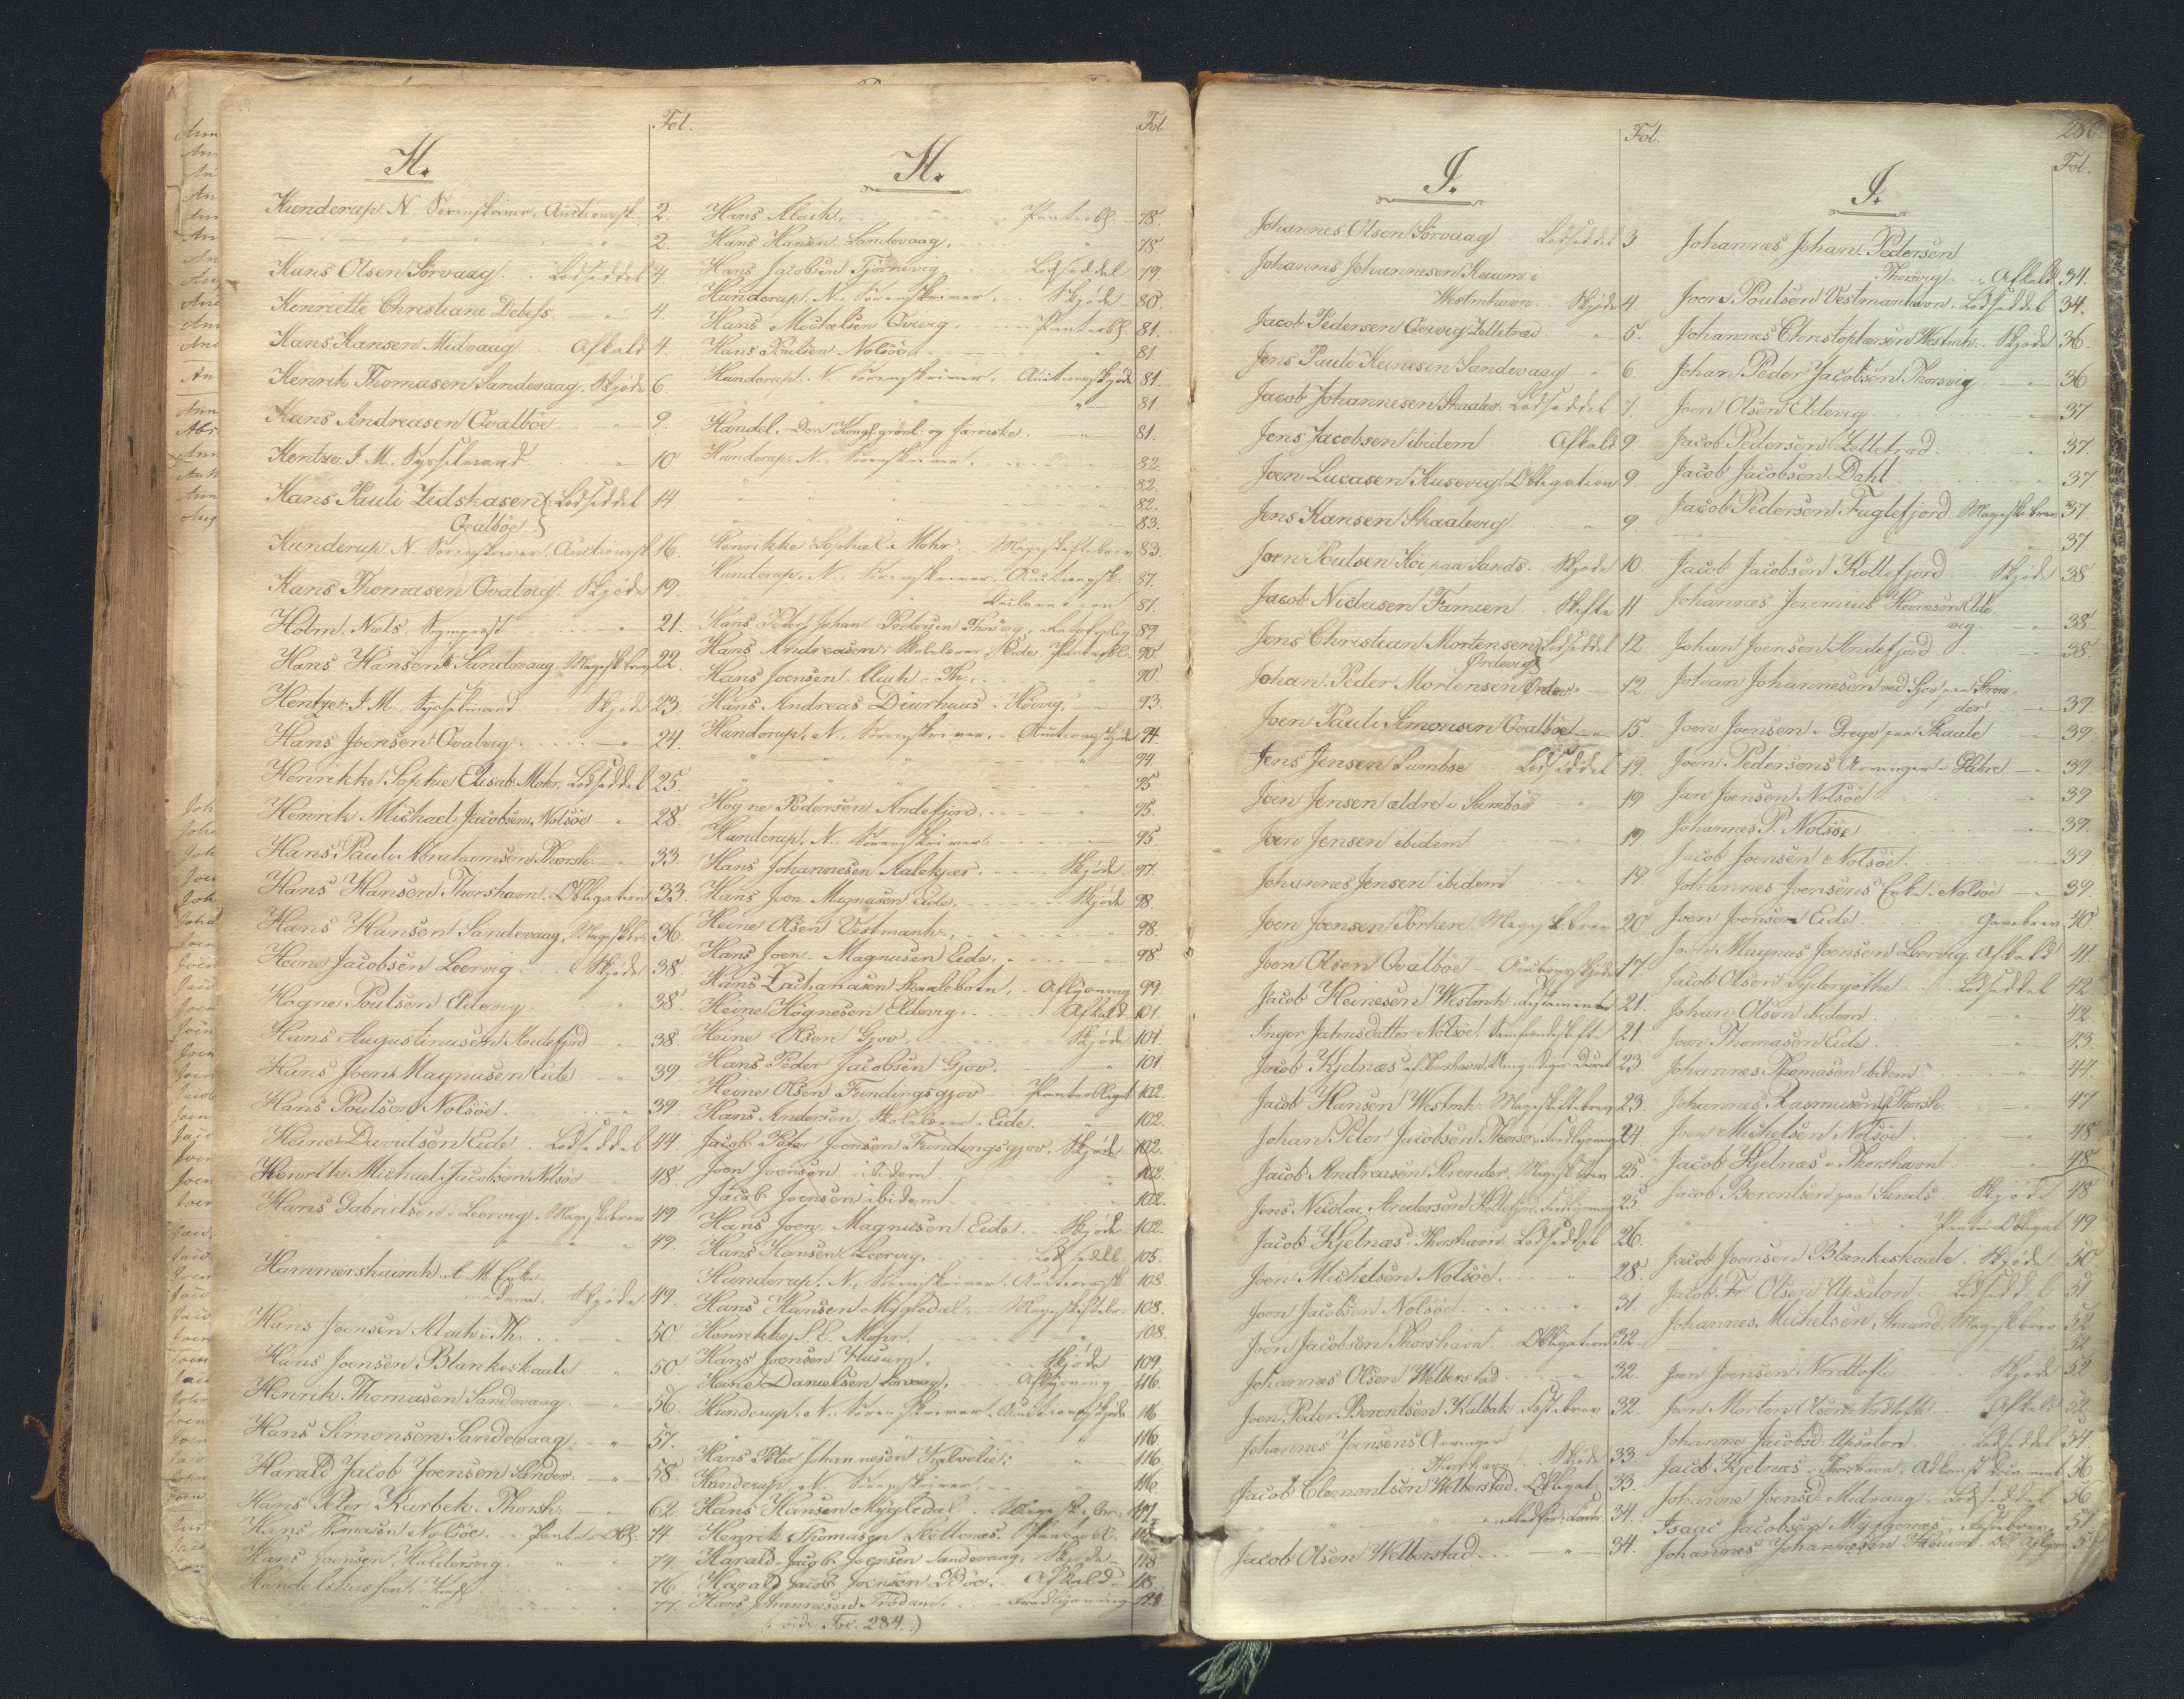 Fol.
H.
Hunderup N. Sorenskriver, Auctionssk. 2.
" 2.
Hans Olsen Sörvaag. Lodseddel 4
Henriette Christiane Debess. — " — 4.
Hans Hansen Midvaag. Afkald 4.
Henrik Thomasen Sandevaag. Skjøde 6
Hans Andreasen Qvalböe " 9.
Hentze. J. M. Sysselmand — 10
Hans Pauli Zidskasen Lodseddel 14
Qvalböe
Hunderup N. Sorenskriver, Auctionssk. 16.
Hans Thomasen Qvalvig. Skjøde 19.
Holm. Niels. " 21.
Hans Hansen Sandevaag. Mageskbrev 22.
Hentze: J. M. Sysselmand Skjøde 23.
Hans Joensen Qvalvig — " 24.
Henrikke Sophie Elisab. Mohr. Lodseddel 25.
Henrik Michael Jacobsen Nolsöe " 28.
Hans Pauli Abrahamsen Thorsh. — 33.
Hans Hansen Thorshavn. Obligation 33.
Hans Hansen Sandevaag, Mageskbr. 36.
Heine Jacobsen Leervig Skjøde 38.
Hogne Poulsen Eldevig " 38.
Hans Augustinusen Andefjord — 38.
Hans Joen Magnusen Eide " 39
Hans Poulsen Nolsöe. — " 39.
Heine Davidsen Eide Lodseddel 44.
Henrik Michael Jacobsen Nolsöe 48.
Hans Gabrielsen Leervig. Mageskbrev 49.
" " " " 49.
Hammershaimb. M. Enke
Skjøde 49.
Hans Joensen Alach i Th. 50.
Hans Joensen Blankeskaale " 50.
Henrik Thomasen Sandevaag. — 56.
Hans Simonsen Sandevaag. " 57.
Harald Jacob Joensen Sandev. — " 58.
Hans Peter Kurbek. Thorsh. " 62.
Hans Nolsöe. Pante Obl. 74
Hans Joensen Haldersvig. " " 74.
76.
" 77.
Fol
H.
Hans Alach. Panteobl. 78.
Hans Hansen Sandevaag. " 78.
Hans Jacobsen Tjörnevig. Lodseddel 79
Hunderup. N. Sorenskriver. Skjøde 80.
Hans Michelsen Qvivig. Panteobl. 81.
Hans Poulsen Nolsöe " 81
Hunderup. N. Sorenskriver. Auctionsskjøde 81.
" " 81.
Handel. Den Kongl. grönl. og færoiske. — 81.
Hunderup. N. Sorenskriver. 82.
" 82.
" 82.
83.
Henrikke Sophie Mohr. Mageskiftebrev 83.
Hunderup. N. Sorenskriver. Auctionssk. 87.
87.
Hans Peter Johan Pedersen Thorsvig. 89.
Hans Andreasen, Skolelærer, Eide. Panteobl. 90.
Hans Joensen. Alach - Th. " 90.
Hans Andreas Diurhuus. Höivig. — 93.
Hunderup. N. Sorenskriver. Auctionsskjøde 94.
" " " 94
" " 95
Hogne Pedersen Andefjord. " 95.
Hunderup. N. Sorenskriver. — 95.
Hans Johannesen Skjøde 97.
Hans Joen Magnusen Eide. Skjøde 98.
Heine Olsen Vestmanh. " 98.
Hans Joen Magnusen Eide. " 98.
Hans Zachariasen Skaalebotn. 99.
Heine Hognesen Eldevig. Afkald 101.
Heine Olsen Gjov. Skjøde 101.
Hans Peder Jacobsen Gjov. " 101
Heine Olsen Fundingsgjov Panteobligat. 102.
Hans Andersen, Skolelærer Eide. " 102.
Jacob Peter Joensen Fundingsgjov. Skjøde 102.
Joen Joensen ibidem " 102.
Jacob Joensen ibidem " 102.
Hans Joen Magnusen Eide. Skjøde 102.
Hans Hansen Leervig. Lodseddel 105.
Hunderup. N. Sorenskriver. Auctionssk. 108.
Hans Hansen Mygledal. Mageskiftebr. 108.
Henrikke S. E. Mohr. " 108.
Hans Joensen Husum. Skjøde 109.
Heine Danielsen Sörvaag. 116.
Hunderup. N. Sorenskriver. Auctionsskjøde 116
" " 116
Hans Peter Johannesen Kalvelie " 116.
Hunderup. N. Sorenskriver. 116.
Hans Hansen Mygledal. Magesk. br. 117.
Henrik Thomasen Panteobl.
Harald Jacob Joensen Sandevaag. Skjøde 118
Harald Jacob Joensen Böe. Afkald 118.
Hans Johannesen
vide Fol. 284.)
Fol.
I.
Johannes Olsen Sörvaag Lodseddel 3
Johannes Johannesen Heium i
Westmhavn. Skjøde 4
Jacob Pedersen Qvivig Zelletræd " 5.
Jens Pauli Hanesen Sandevaag — " 6
Jacob Johannesen Skaalev. Lodseddel 7.
Jens Jacobsen ibidem Afkald 9
Joen Lucasen Husevig. Obligation 9
Jens Hansen Skaalevig " 9
Joen Poulsen Köi paa Sands. Skjøde 10.
Jacob Niclasen Famien. Skifte 11
Jens Christian Mortensen Lodseddel 12.
Ördevig
Johan Peder Mortensen Ördev. — 12
Joen Pauli Simonsen Qvalböe " 15.
Jens Jensen Sumbøe Lodseddel 19.
Joen Jensen ældre i Sumböe " 19
Joen Jensen ibidem " 19
Johannes Jensen ibidem " 19.
Joen Joensen Porkere. Magesk. brev 20
Joen Olsen Qvalböe — Auctionsskjøde 17.
Jacob Heinesen Westmh. Testamente 21.
Inger Jahnsdatter Nolsöe. Samfrændeskifte 21.
Jacob Kjelnæs 23.
Jacob Hansen Westmh. Mageskiftebrev 23.
Johan Peter Jacobsen Thorsv. Fredlysning 24
Jacob Andreasen Strender. Mageskbrev 25.
Jens Nicolai Andersen Kollefjord. 25.
Jacob Kjelnæs Thorshavn. Lodseddel 26.
Joen Michelsen Nolsöe. " 28.
Joen Jacobsen Nolsöe " 31.
Joen Jacobsen Thorshavn. Obligation 32.
Johannes Olsen Welberstad " 32.
Joen Peder Berentsen Kalbak. Festebrev 32.
Johannes Joensens Arvinger
Thorshavn. Skjøde 33.
Jacob Clementsen Welberstad. Obligat. 33.
34.
Jacob Olsen Welberstad — " 34.
286.
Fol.
I.
Johannes Johan Pedersen
Thorsvig. Afkald 34.
Joen Poulsen Vestmanhavn. Lodseddel 34.
Johannes Christophersen Westmh. Skjøde 36.
Johan Peder Jacobsen Thorsvig — 36
Joen Olsen Eldevig " 37
Jacob Pedersen Zelletræd. " 37.
Jacob Jacobsen Dahl " 37
Jacob Pedersen Fuglefjord Mageskbrev 37.
" 37.
Jacob Jacobsen Kollefjord. Skjøde 38.
Johannes Jeremias Heinesen Elde-
vig. " 38.
Johan Joensen Andefjord 38.
Johan Johannesen ved Sjov paa Stren-
der. — 39.
Joen Joensen paa Skaale 39.
Joen Pedersens Arvinger Glibre — " 39
Jan Joensen Nolsöe 39
Johannes P. Nolsöe. " 39.
Jacob Joensen Nolsöe. 39
Johannes Joensens Enke Nolsöe — " 39.
Joen Joensen Eide. Gavebrev 40.
Joen Magnus Joensen Leervig. Afkald 41.
Jacob Olsen Sydergöthe. Lodseddel 42.
Johan Olsen ibidem. — " 42.
Joen Thomasen Eide. " 43.
Johannes Thomasen ibidem — " 44.
Johannes Rasmusen Thorsh. " 47
Joen Michelsen Nolsöe. " 48
Jacob Kjelnæs Thorshavn. " 48
Jacob Berentsen paa Sands Skjøde 48
" Pante Obligat. 49
Jacob Joensen Blankeskaale. Skjøde 50.
Jacob Fr. Olsen Upsalon. Lodseddel 51.
Johannes Michelsen Straand. Mageskbrev 52
52
Joen Joensen Nordtofte Skjøde 52
Joen Morten Olsen Nordtofte. Afkald 52.
Johanne Jacobsd. Upsalon. Lodseddel 54.
Jacob Kjelnæs. Thorshavn. Adkomst Document 56
Johanne Joensd. Midvaag. Lodseddel 56
Isaac Jacobsen Myggenæs. Festebrev 57.
Johannes Johannesen Heium.